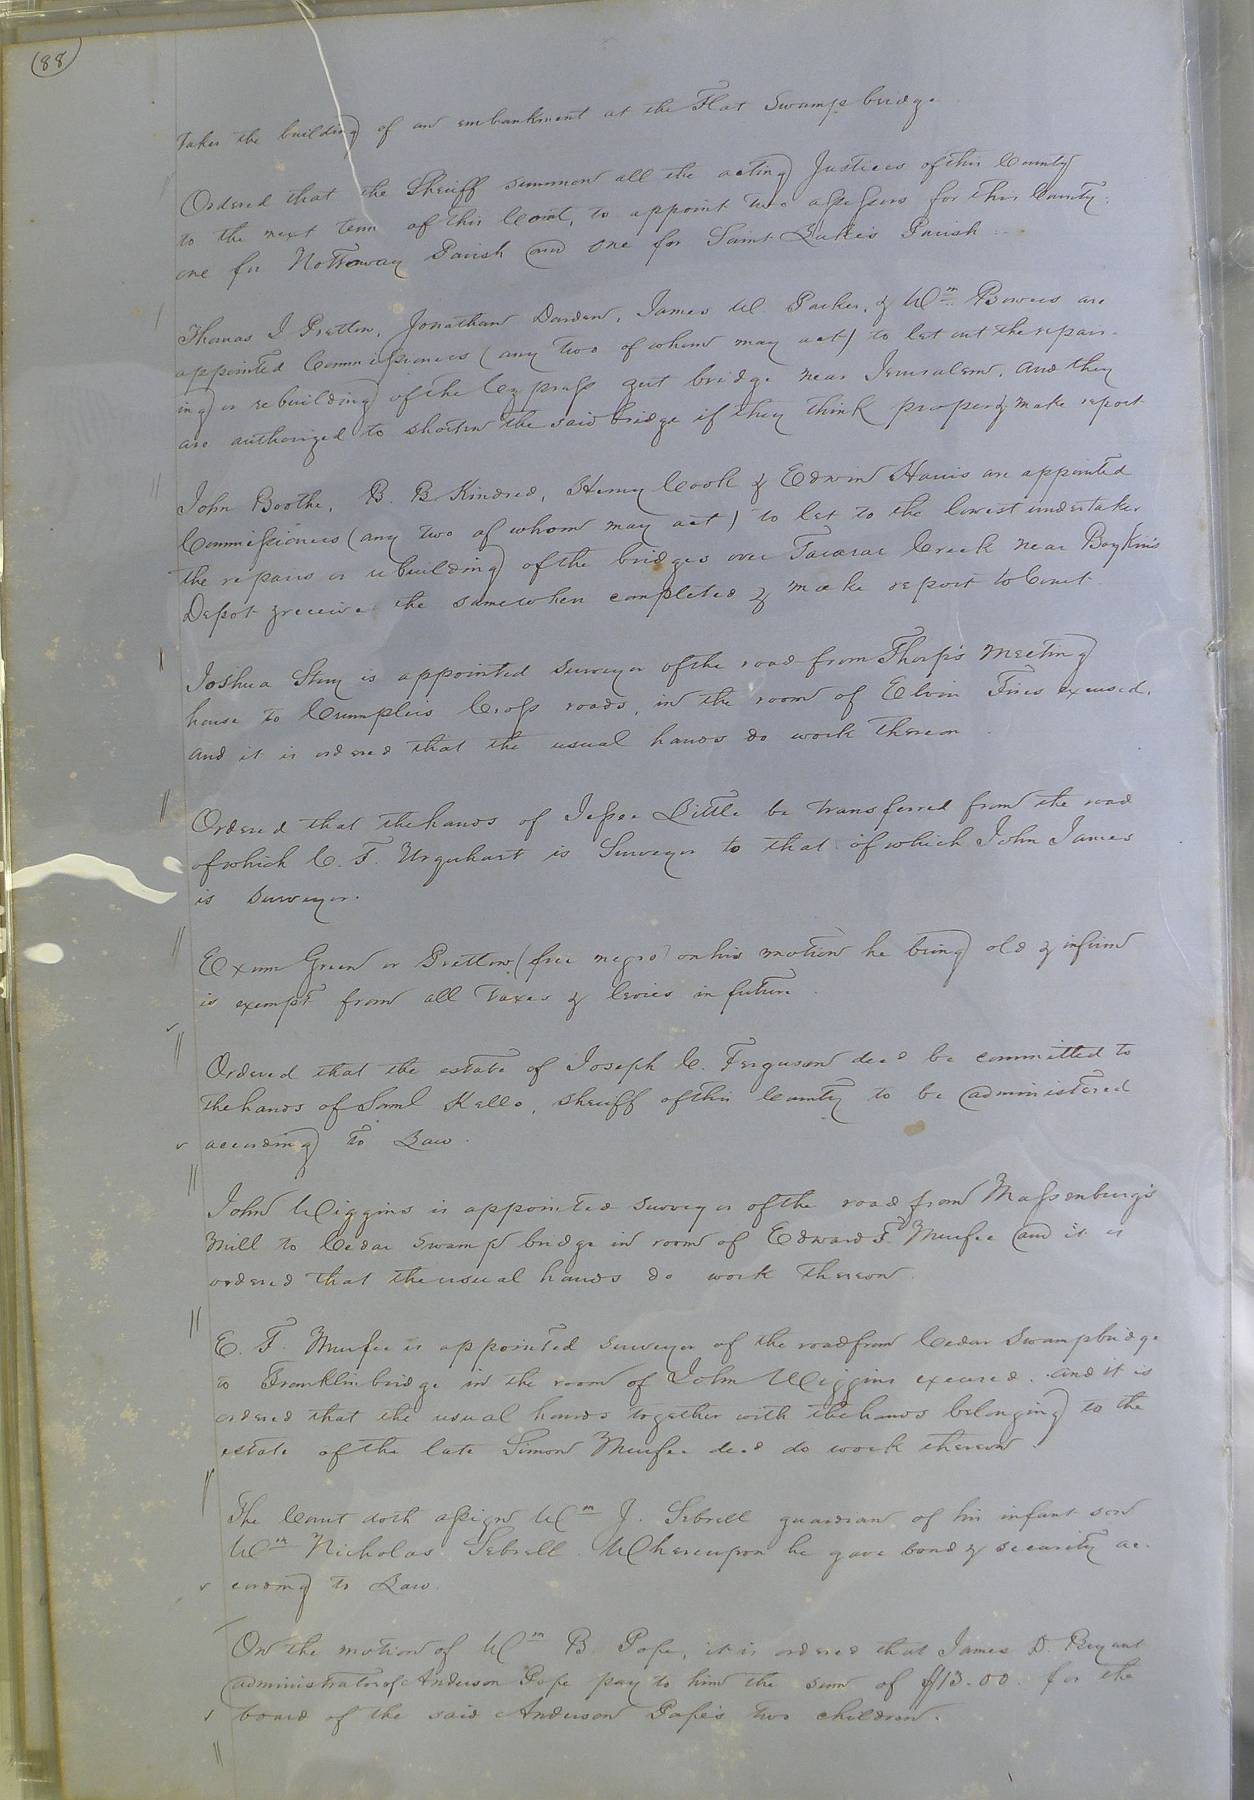 (88)
takes the building of an embankment at the Flat Swamp bridge
Ordered that the Sheriff summon all the acting Justices of this County
to the next term of this Court, to appoint two assessors for this County.
one for Nottoway Parish and one for Saint Luke's Parish
Thomas J Pretlow, Jonathan Darden, James W. Parker, & Wm Bowers are
appointed Commissioners (any two of whom may act) to let out the repair-
ing or rebuilding of the Cypress gut bridge near Jerusalem, and they
are authorized to shorten the said bridge if they think proper & make report
John Boothe, B. B. Kindred, Henry Cook & Edwin Harris are appointed
Commissioners (any two of whom may act) to let to the lowest undertaker
the repairs or rebuilding of the bridges over Tararar Creek near Boykin's
Depot & receive the same when completed & make report to Court
Joshua Story is appointed Surveyor of the road from Thorp's Meeting
house to Crumpler's Cross roads, in the room of Elvin Fires excused,
and it is ordered that the usual hands do work thereon
Ordered that the hands of Jesse Little be transferred from the road
of which C. F. Urquhart is Surveyor to that of which John James
is Surveyor.
Exum Green or Pretlow (free negro) on his motion he being old & infirm
is exempt from all taxes & levies in future
Ordered that the estate of Joseph C. Ferguson decd be committed to
the hands of Saml Kello, Sheriff of this County to be administered
according to Law.
John Wiggins is appointed surveyor of the road from Massenburg's
Mill to Cedar Swamp bridge in room of Edward F. Murfee and it is
ordered that the usual hands do work thereon
E. F. Murfee is appointed surveyor of the road from Cedar Swamp bridge
to Franklin bridge in the room of John Wiggins excused. and it is
ordered that the usual hands together with the hands belonging to the
estate of the late Simon Murfee decd do work thereon.
The Court doth assign Wm J. Sebrell guardian of his infant son
Wm Nicholas Sebrell. Whereupon he gave bond & security ac-
cording to Law.
On the motion of Wm B. Pope, it is ordered that James D. Bryant
administrator of Anderson Pope pay to him the sum of $13.00 for the
board of the said Anderson Pope's two children.